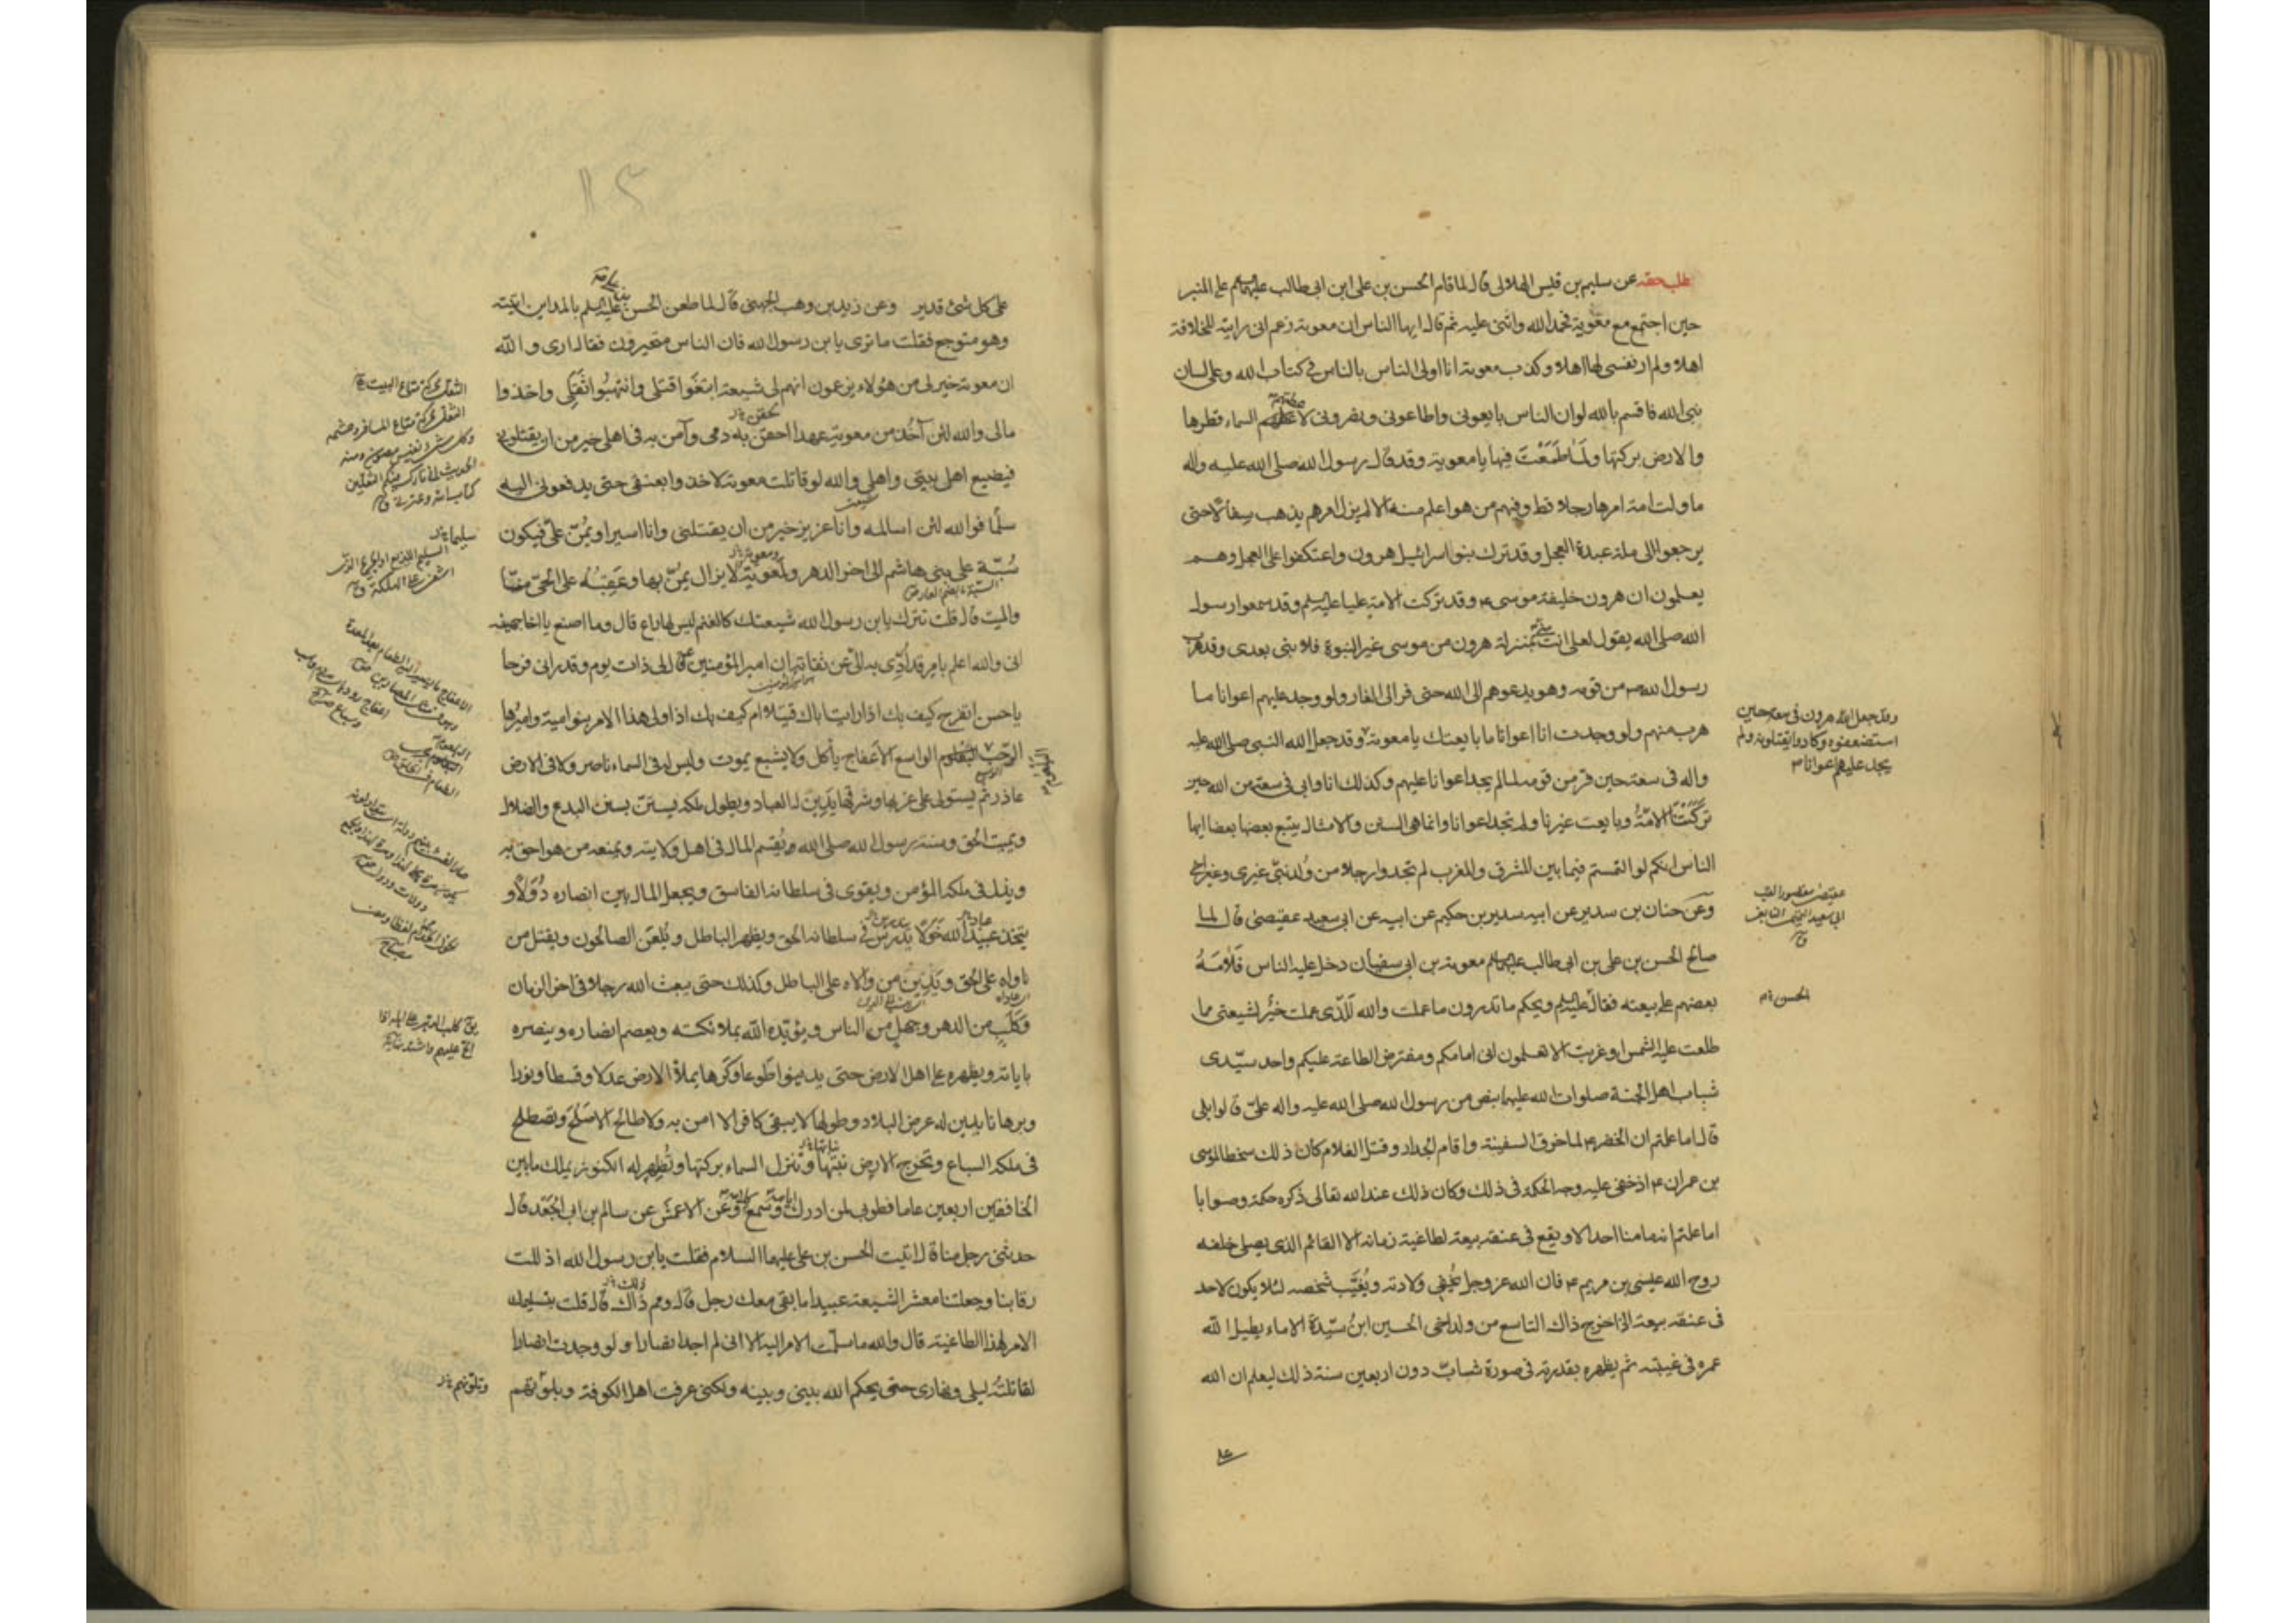 طلب حقه عن سليم بن قيس الهلالى قال لما قام الحسن بن على ابن ابى طالب عليهما السلم على المنبر
حين اجتمع مع معوية فحمد الله واثنى عليه ثم قال ايها الناس ان معوية زعم انى رايته للخلافة
اهلا ولم ار نفسى لها اهلا وكذب معوية انا اولى الناس بالناس فى كتاب الله وعلى لسان
نبى الله فاقسم بالله لو ان الناس بايعونى واطاعونى ونصرونى لاعطتهم السماء قطرها
والارض بركتها ولما طمعت فيها يا معوية وقد قال رسول الله صلى الله عليه واله
ما ولت امة امرها رجلا قط وفيهم من هو اعلم منه الا لم يزل امرهم يذهب سفالا حتى
يرجعوا الى ملة عبدة العجل وقد ترك بنو اسرائيل هرون واعتكفوا على العجل وهم
يعلمون ان هرون خليفة موسى ع وقد تركت الامة عليا عليه السلم وقد سمعوا رسول
الله صلى الله يقول لعلى انت منى بمنزلة هرون من موسى غير النبوة فلا نبى بعدى وقد هرب
رسول الله ص من قومه وهو يدعوهم الى الله حتى فر الى الغار ولو وجد عليهم اعوانا ما
هرب منهم ولو وجدت انا اعوانا ما بايعتك يا معوية وقد جعل الله النبى صلى الله عليه
واله فى سعة حين فر من قومه لما لم يجد اعوانا عليهم وكذلك انا وابى فى سعة من الله حين
تركتنا الامة وبايعت غيرنا ولم نجد اعوانا وانما هى السنن والامثال يتبع بعضها بعضا ايها
الناس انكم لو التمستم فيما بين المشرق والمغرب لم تجدوا رجلا من ولد نبى غيرى وغير اخى
وعن حنان بن سدير عن ابيه سدير بن حكيم عن ابيه عن ابى سعيد عقيصى قال لما
صالح الحسن بن على بن ابى طالب عليهما السلم معوية بن ابى سفيان دخل عليه الناس فلامه
بعضهم على بيعته فقال عليه السلم ويحكم ما تدرون ما عملت والله للذى عملت خير لشيعتى مما
طلعت عليه الشمس او غربت الا تعلمون انى امامكم ومفترض الطاعة عليكم واحد سيدى
شباب اهل الجنة صلوات الله عليهما بنص من رسول الله صلى الله عليه واله على قالوا بلى
قال اما علمتم ان الخضر ع لما خرق السفينة واقام الجدار وقتل الغلام كان ذلك سخطا لموسى
بن عمران ع اذ خفى عليه وجه الحكمة فى ذلك وكان ذلك عند الله تعالى ذكره حكمة وصوابا
اما علمتم انه ما منا احد الا ويقع فى عنقه بيعة لطاغية زمانه الا القائم الذى يصلى خلفه
روح الله عيسى بن مريم ع فان الله عز وجل يخفى ولادته ويغيب شخصه لئلا يكون لاحد
فى عنقه بيعة اذا خرج ذاك التاسع من ولد اخى الحسين ابن سيدة الاماء يطيل الله
عمره فى غيبته ثم يظهره بقدرته فى صورة شاب دون اربعين سنة ذلك ليعلم ان الله
وقد جعل الله هرون فى سعة حين
استضعفوه وكادوا يقتلونه ولم
يجد عليهم اعوانا
عقيصى مقصورا لقب
ابى سعيد التيمى التابعى
الحسن
على كل شئ قدير وعن زيد بن وهب الجهنى قال لما طعن الحسن بن على عليه السلم بالمداين اتيته
وهو متوجع فقلت ما ترى يا بن رسول الله فان الناس متحيرون فقال ارى والله
ان معوية خير لى من هؤلاء يزعمون انهم لى شيعة ابتغوا قتلى وانتهبوا ثقلى واخذوا
مالى والله لئن آخذ من معوية عهدا احقن به دمى وآمن به فى اهلى خير من ان يقتلونى
فيضيع اهل بيتى واهلى والله لو قاتلت معوية لاخذوا بعنقى حتى يدفعونى اليه
سلما فوالله لئن اسالمه وانا عزيز خير من ان يقتلنى وانا اسير او يمن على فيكون
سبة على بنى هاشم الى اخر الدهر ولمعوية لا يزال يمن بها وعقبه على الحى منا
والميت قال قلت تترك يا بن رسول الله شيعتك كالغنم ليس لها راع قال وما اصنع يا اخا جهينة
انى والله اعلم بامر قد ادى به الى عن ثقاته ان امير المؤمنين ع قال لى ذات يوم وقد رانى فرحا
يا حسن اتفرح كيف بك اذا رايت اباك قتيلا ام كيف بك اذا ولى هذا الامر بنو امية واميرها
الرحب البلعوم الواسع الاعفاج ياكل ولا يشبع يموت وليس له فى السماء ناصر ولا فى الارض
عاذر ثم يستولى على غربها وشرقها يدين له العباد ويطول ملكه يستن بسنن البدع والضلال
ويميت الحق وسنة رسول الله صلى الله ويقسم المال فى اهل ولايته ويمنعه من هو احق به
ويذل فى ملكه المؤمن ويقوى فى سلطانه الفاسق ويجعل المال بين انصاره دولا و
يتخذ عبيد الله خولا يدرس فى سلطانه الحق ويظهر الباطل ويلعن الصالحون ويقتل من
ناواه على الحق ويدين من والاه على الباطل وكذلك حتى يبعث الله رجلا فى اخر الزمان
وكلب من الدهر وجهل من الناس ويؤيده الله بملائكته ويعصم انصاره وينصره
باياته ويظهره على اهل الارض حتى يدينوا طوعا وكرها يملأ الارض عدلا وقسطا ونورا
وبرهانا يدين له عرض البلاد وطولها لا يبقى كافر الا امن به ولا طالح الا صلح وتصطلح
فى ملكه السباع وتخرج الارض نبتها وتنزل السماء بركتها وتظهر له الكنوز يملك ما بين
الخافقين اربعين عاما فطوبى لمن ادرك ايامه وسمع كلامه وعن الاعمش عن سالم بن ابى الجعد قال
حدثنى رجل منا قال اتيت الحسن بن على عليهما السلام فقلت يا بن رسول الله اذللت
رقابنا وجعلتنا معشر الشيعة عبيدا ما بقى معك رجل قال ومم ذاك قال قلت بتسليمك
الامر لهذا الطاغية قال والله ما سلمت الامر اليه الا انى لم اجد انصارا ولو وجدت انصارا
لقاتلته ليلى ونهارى حتى يحكم الله بينى وبينه ولكنى عرفت اهل الكوفة وبلوتهم
الثقل محركة متاع البيت
الثقل محركة متاع المسافر وحشمه
وكل شئ نفيس مصون ومنه
الحديث انى تارك فيكم الثقلين
كتاب الله وعترتى